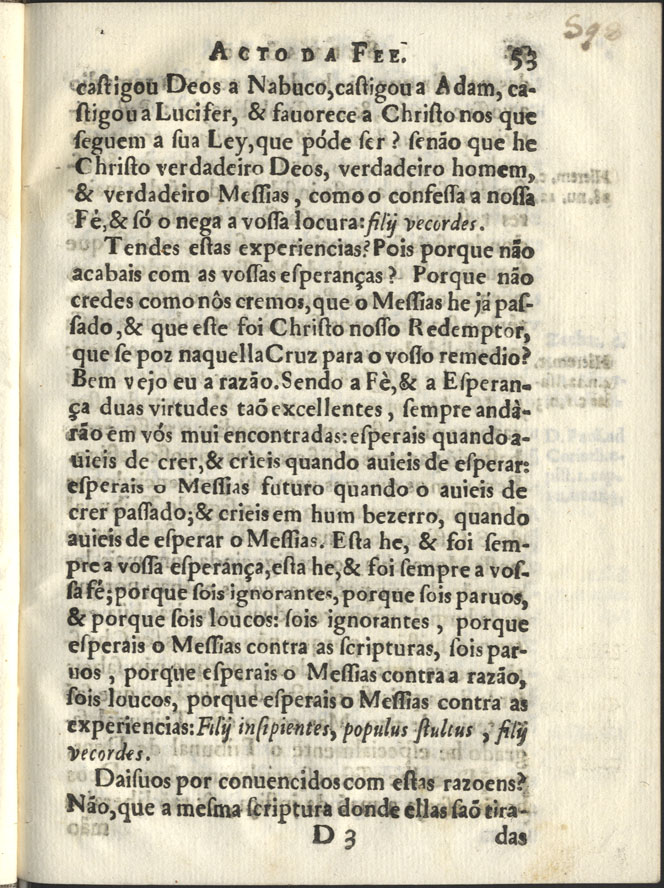 S98
ACTO DA FEE. 53
caſtigou Deos a Nabuco, caſtigou a Adam, ca-
ſtigou a Lucifer, & fauorece a Chriſto nos que
ſeguem a ſua Ley, que póde ſer? ſenão que he
Chriſto verdadeiro Deos, verdadeiro homem,
& verdadeiro Meſſias, como o confeſſa a noſſa
Fè, & ſó o nega a voſſa locura: filij vecordes.
Tendes eſtas experiencias? Pois porque não
acabais com as voſſas eſperanças? Porque não
credes como nôs cremos, que o Meſſias he já paſ-
ſado, & que eſte foi Chriſto noſſo Redemptor,
que ſe poz naquella Cruz para o voſſo remedio?
Bem vejo eu a razão. Sendo a Fè, & a Eſperan-
ça duas virtudes taõ excellentes, ſempre andà-
rão em vós mui encontradas: eſperais quando a-
uieis de crer, & crieis quando auieis de eſperar:
eſperais o Meſſias futuro quando o auieis de
crer paſſado; & crieis em hum bezerro, quando
auieis de eſperar o Meſſias. Eſta he, & foi ſem-
pre a voſſa eſperança, eſta he, & foi ſempre a voſ-
ſa fé; porque ſois ignorantes, porque ſois paruos,
& porque ſois loucos: ſois ignorantes, porque
eſperais o Meſſias contra as ſcripturas, ſois par-
uos, porque eſperais o Meſſias contra a razão,
ſois loucos, porque eſperais o Meſſias contra as
experiencias: Filij inſipientes, populus ſtultus, filij
vecordes.
Daiſuos por conuencidos com eſtas razoens?
Não, que a meſma ſcriptura donde ellas ſaõ tira-
D 3 das